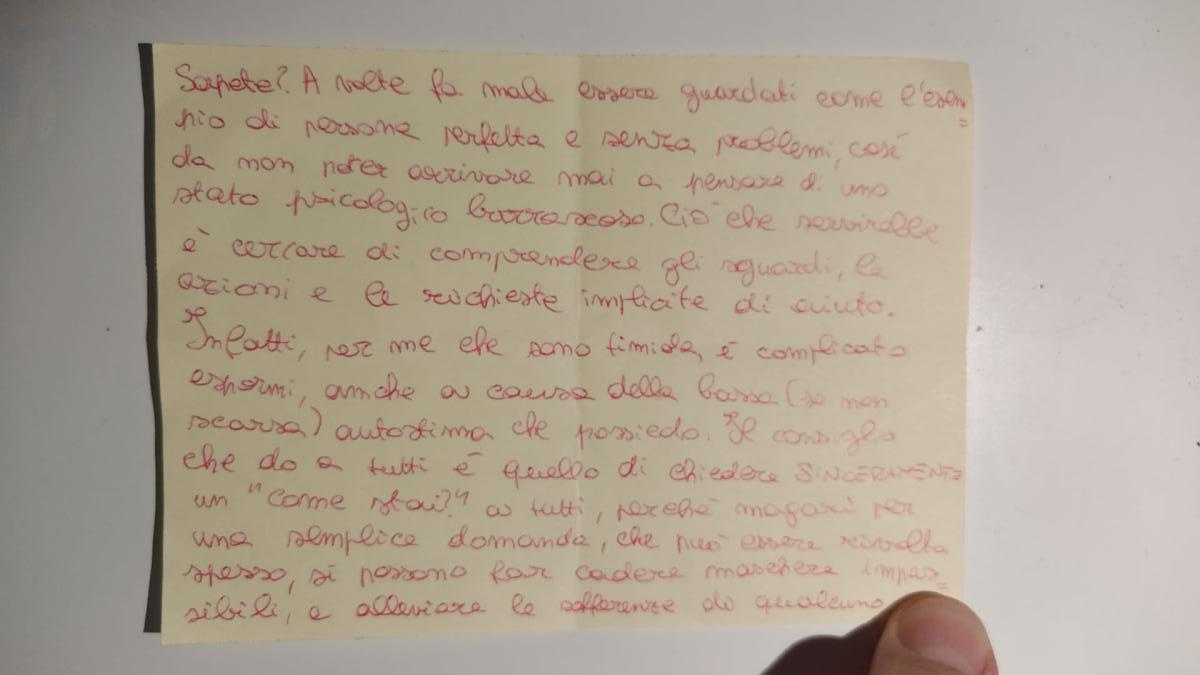 Sapete? A volte fa male essere guardati come l'esem=
pio di persona perfetta e senza problemi, così
da non poter arrivare mai a pensare di uno
stato psicologico burrascoso. Ciò che servirebbe
è cercare di comprendere gli sguardi, le
azioni e le richieste implicite di aiuto.
Infatti, per me che sono timida, è complicato
espormi, anche a causa della bassa (se non
scarsa) autostima che possiedo. Il consiglio
che do a tutti è quello di chiedere SINCERAMENTE
un "come stai?" a tutti, perché magari per
una semplice domanda, che può essere rivolta
spesso, si possono far cadere maschere impas=
sibili, e alleviare le sofferenze di qualcuno